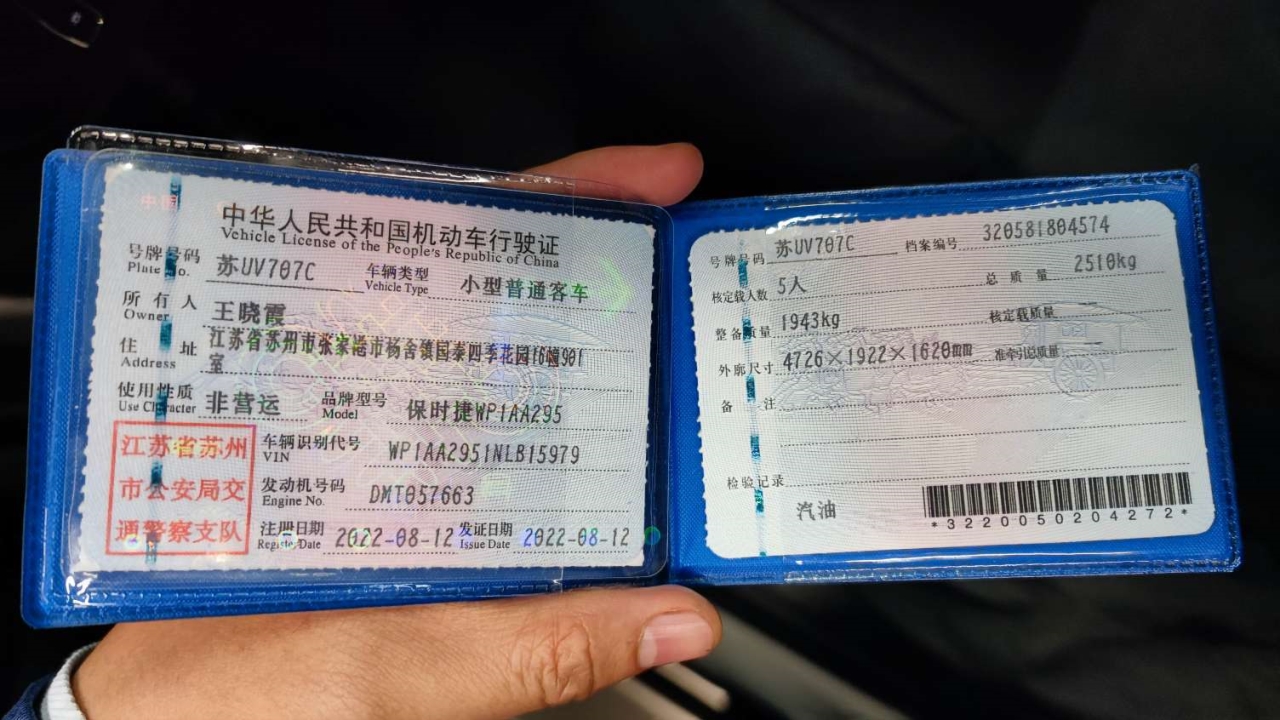 中国
中华人民共和国机动车行驶证
Vehicle License of the People's Republic of China
号牌号码 苏UV707C 车辆类型 小型普通客车
Plate No. Vehicle Type
所有人 王晓霞
Owner
住址 江苏省苏州市张家港市杨舍镇国泰四季花园16幢901
Address 室
使用性质 非营运 品牌型号 保时捷WP1AA295
Use Character Model
江苏省苏州
市公安局交
通警察支队
车辆识别代号 WP1AA2951NLB15979
VIN
发动机号码 DMT057663
Engine No.
注册日期 2022-08-12 发证日期 2022-08-12
Register Date Issue Date
号牌号码 苏UV707C 档案编号 320581804574
核定载人数 5人 总质量 2510kg
整备质量 1943kg 核定载质量
外廓尺寸 4726×1922×1620mm 准牵引总质量
备注
检验记录
汽油
*3220050204272*